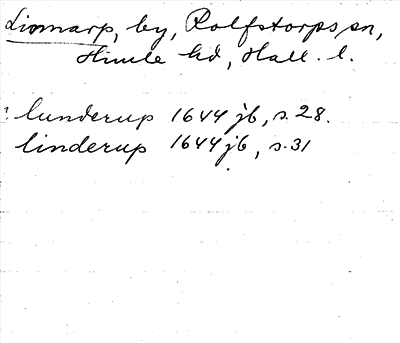 Linmarp, by, Rolfstorps sn,
Himle hd, Hall. l.
? lunderup 1644 jb, s. 28.
linderup 1644 jb, s. 31